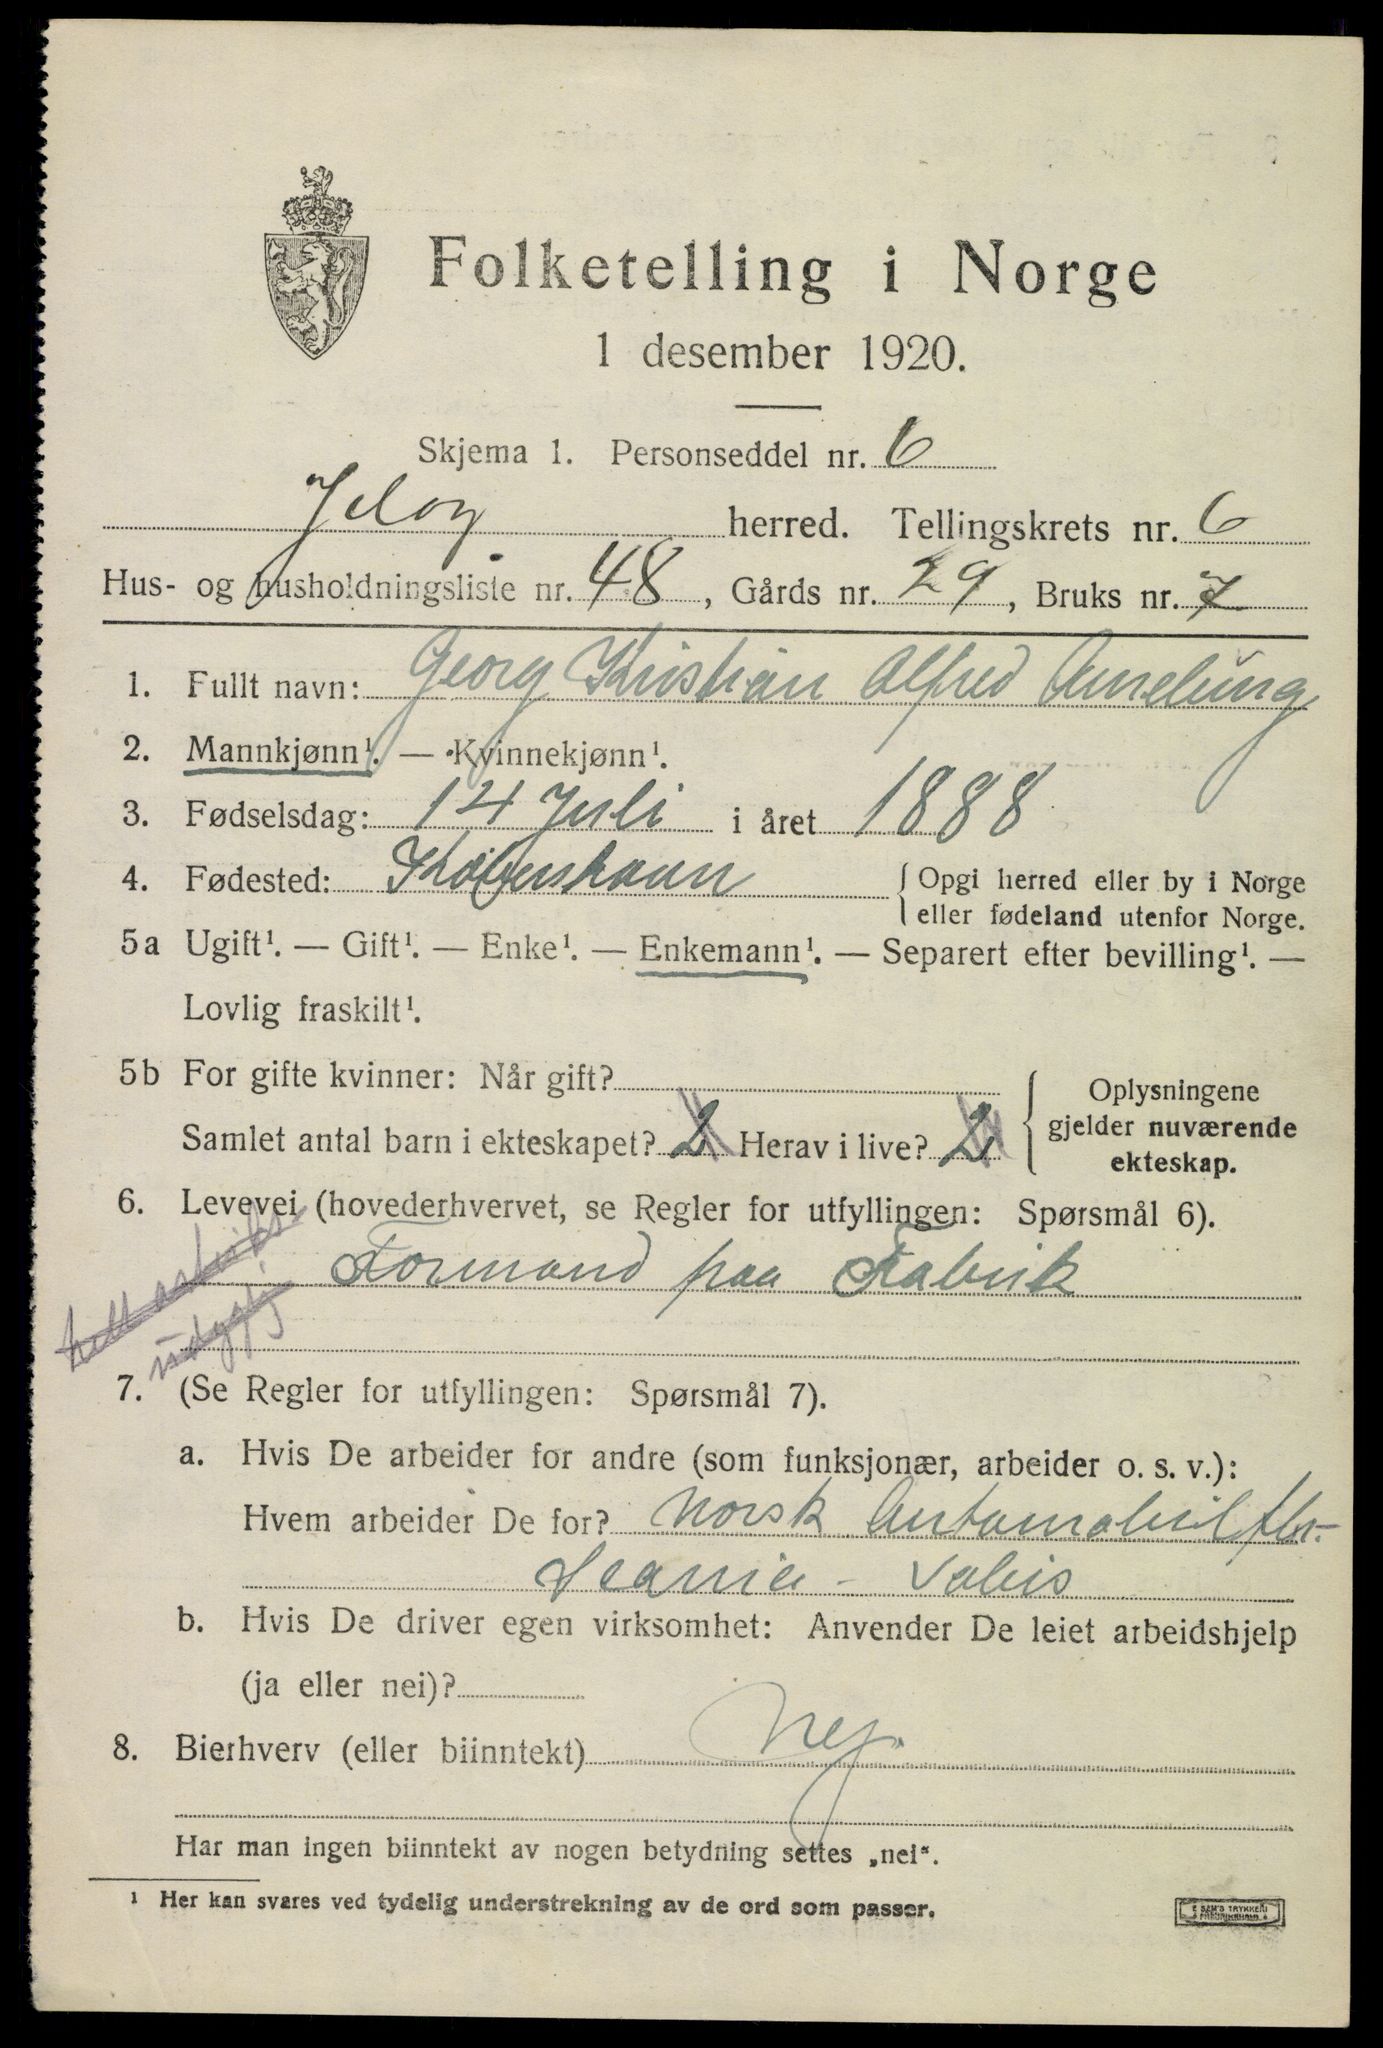 Folketelling i Norge
1 desember 1920.
Skjema 1. Personseddel nr. 6
Jeløy herred. Tellingskrets nr. 6
Hus- og husholdningsliste nr. 48, Gårds nr. 29, Bruks nr. 7
1. Fullt navn: Georg Kristian Alfred Amelung
2. Mannkjønn¹. — Kvinnekjønn¹.
3. Fødselsdag: 14 Juli i året 1888
4. Fødested: København { Opgi herred eller by i Norge
eller fødeland utenfor Norge.
5a Ugift¹. — Gift¹. — Enke¹. — Enkemann¹. — Separert efter bevilling¹. —
Lovlig fraskilt¹.
5b For gifte kvinner: Når gift?
Samlet antal barn i ekteskapet? 2 Herav i live? 2 { Oplysningene
gjelder nuværende
ekteskap.
6. Levevei (hovederhvervet, se Regler for utfyllingen: Spørsmål 6).
Formand paa Fabrik
7. (Se Regler for utfyllingen: Spørsmål 7).
a. Hvis De arbeider for andre (som funksjonær, arbeider o. s. v.):
Hvem arbeider De for? Norsk Automobil
Scania - Vabis
b. Hvis De driver egen virksomhet: Anvender De leiet arbeidshjelp
(ja eller nei)?
8. Bierhverv (eller biinntekt) Nej.
Har man ingen biinntekt av nogen betydning settes „nei“.
¹ Her kan svares ved tydelig understrekning av de ord som passer.
E SEM'S TRYKKERI
FREDRIKSHALD